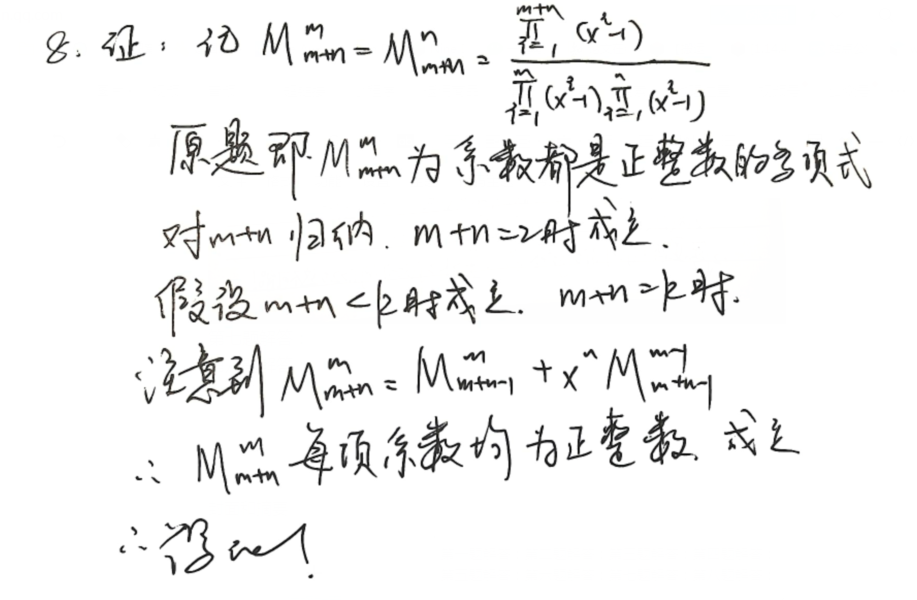 8. 证: 记 M_{m+n}^{m} = M_{m+n}^{n} = \frac{\prod_{i=1}^{m+n}(x^i-1)}{\prod_{i=1}^{m}(x^i-1)\prod_{i=1}^{n}(x^i-1)}
原题即 M_{m+n}^{m} 为系数都是正整数的多项式
对m+n归纳. m+n=2时成立.
假设m+n<k时成立. m+n=k时.
注意到 M_{m+n}^{m} = M_{m+n-1}^{m} + x^n M_{m+n-1}^{m-1}
∴ M_{m+n}^{m} 每项系数均为正整数. 成立
∴ 得证!